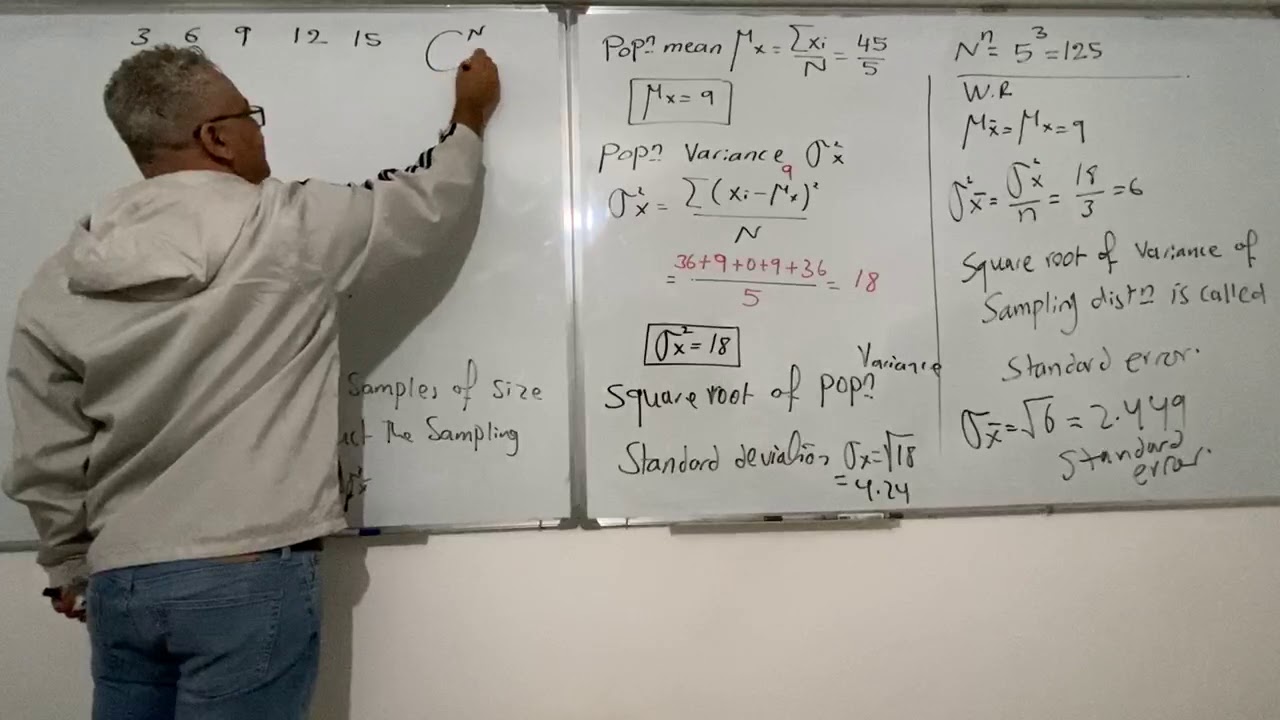 3 6 9 12 15 C^N
Samples of size
The Sampling
Pop? mean μx = Σxi/N = 45/5
μx = 9
Pop? Variance σ²x
9
σ²x = Σ(xi-μx)²/N
= 36+9+0+9+36/5 = 18
σx² = 18
Variance
Square root of Pop?
Standard deviation, σx = √18
= 4.24
N^n = 5^3 = 125
W.R
μx̄ = μx = 9
σ²x̄ = σ²x/n = 18/3 = 6
Square root of Variance of
Sampling distn is called
Standard error.
σx̄ = √6 = 2.449
Standard
error.